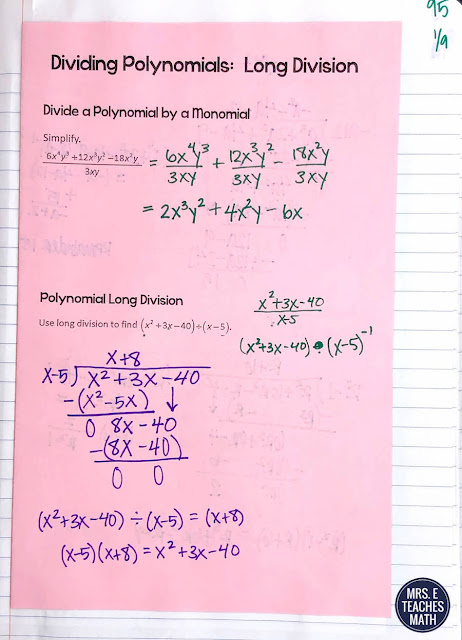 95
1/9
Dividing Polynomials: Long Division
Divide a Polynomial by a Monomial
Simplify.
(6x⁴y³+12x³y²−18x²y)/(3xy) = 6x⁴y³/3xy + 12x³y²/3xy − 18x²y/3xy
= 2x³y² + 4x²y − 6x
Polynomial Long Division
Use long division to find (x² + 3x − 40) ÷ (x − 5).
(x²+3x−40)/(x−5)
(x²+3x−40) • (x−5)⁻¹
x+8
x−5 ) x² + 3x − 40
−(x² − 5x) ↓
0 8x − 40
−(8x − 40)
0 0
(x²+3x−40) ÷ (x−5) = (x+8)
(x−5)(x+8) = x² + 3x − 40
MRS. E
TEACHES
MATH